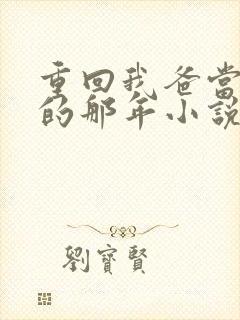 重回我爸当
的那年小说
劉寶賢